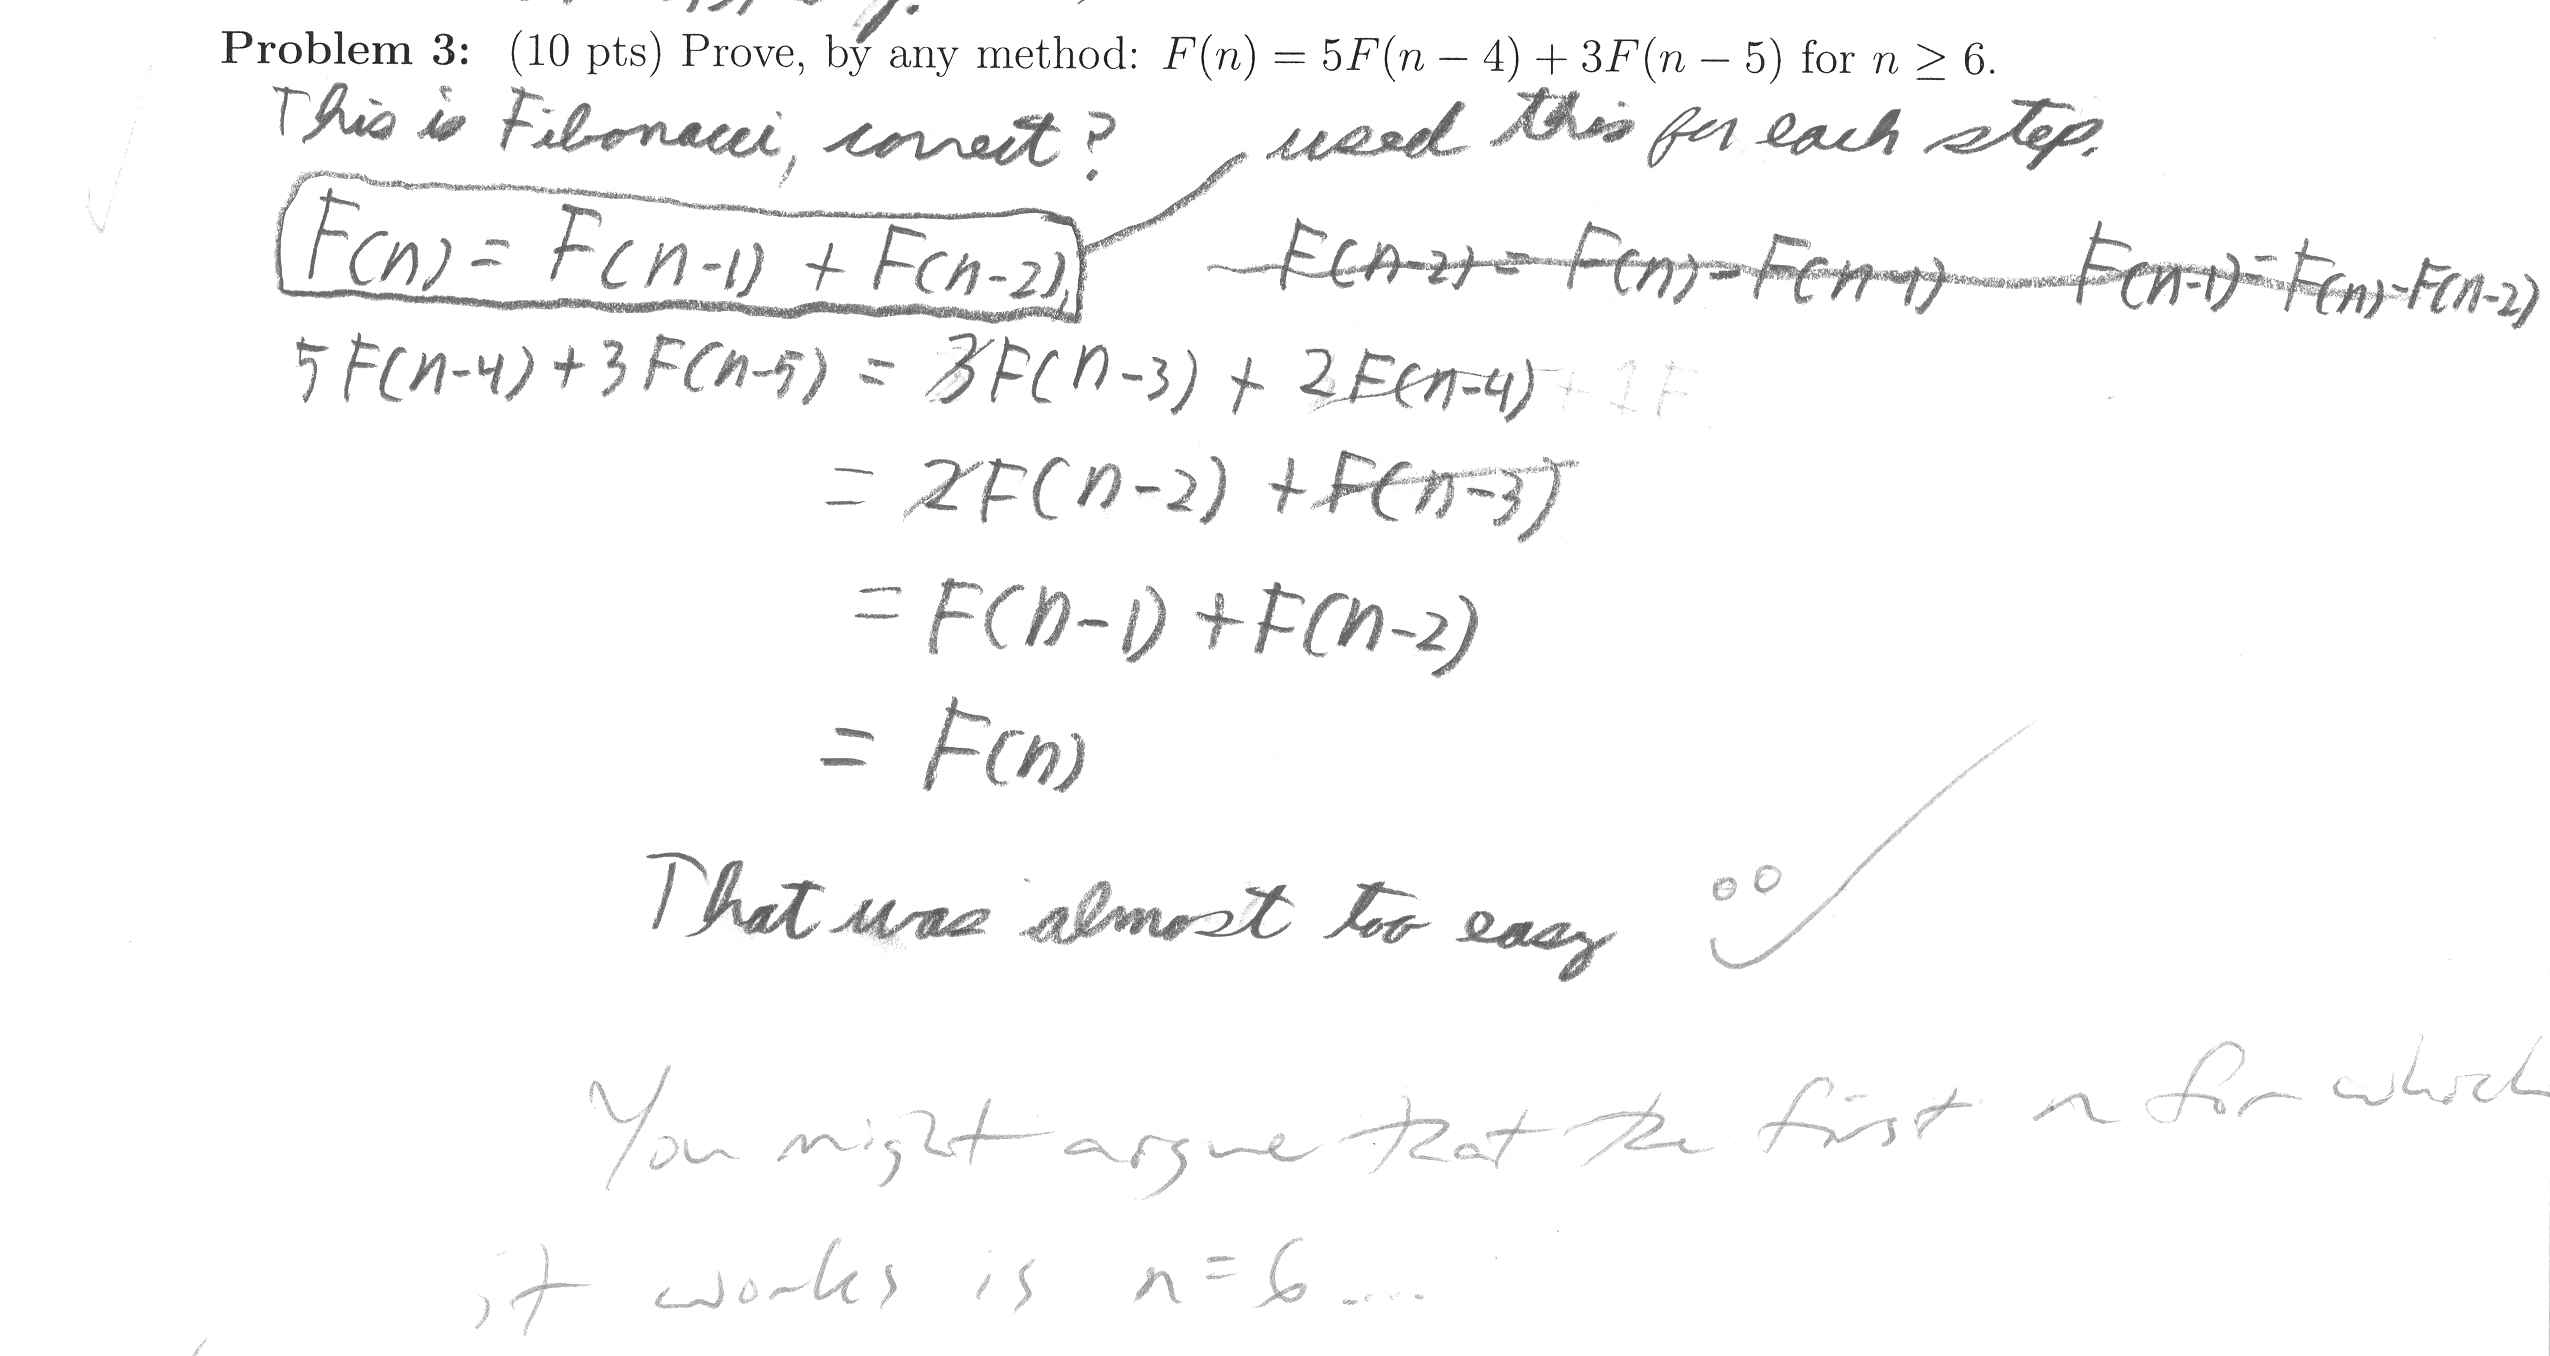 Problem 3: (10 pts) Prove, by any method: F(n) = 5F(n − 4) + 3F(n − 5) for n ≥ 6.
This is Fibonacci, correct? used this for each step.
F(n) = F(n-1) + F(n-2), F(n-2) = F(n) - F(n-1) F(n-1) = F(n) - F(n-2)
5F(n-4) + 3F(n-5) = 3F(n-3) + 2F(n-4) + 2F
= 2F(n-2) + F(n-3)
= F(n-1) + F(n-2)
= F(n)
That was almost too easy
You might argue that the first n for which
it works is n = 6 ....